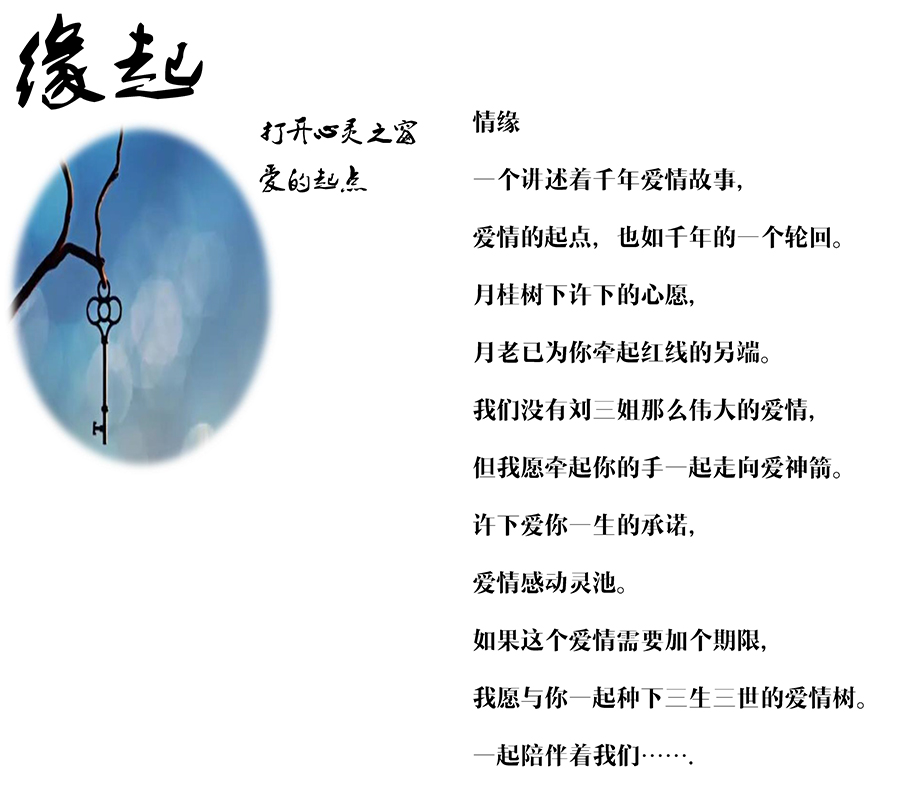 缘起
打开心灵之窗
爱的起点
情缘
一个讲述着千年爱情故事，
爱情的起点，也如千年的一个轮回。
月桂树下许下的心愿，
月老已为你牵起红线的另端。
我们没有刘三姐那么伟大的爱情，
但我愿牵起你的手一起走向爱神箭。
许下爱你一生的承诺，
爱情感动灵池。
如果这个爱情需要加个期限，
我愿与你一起种下三生三世的爱情树。
一起陪伴着我们…….